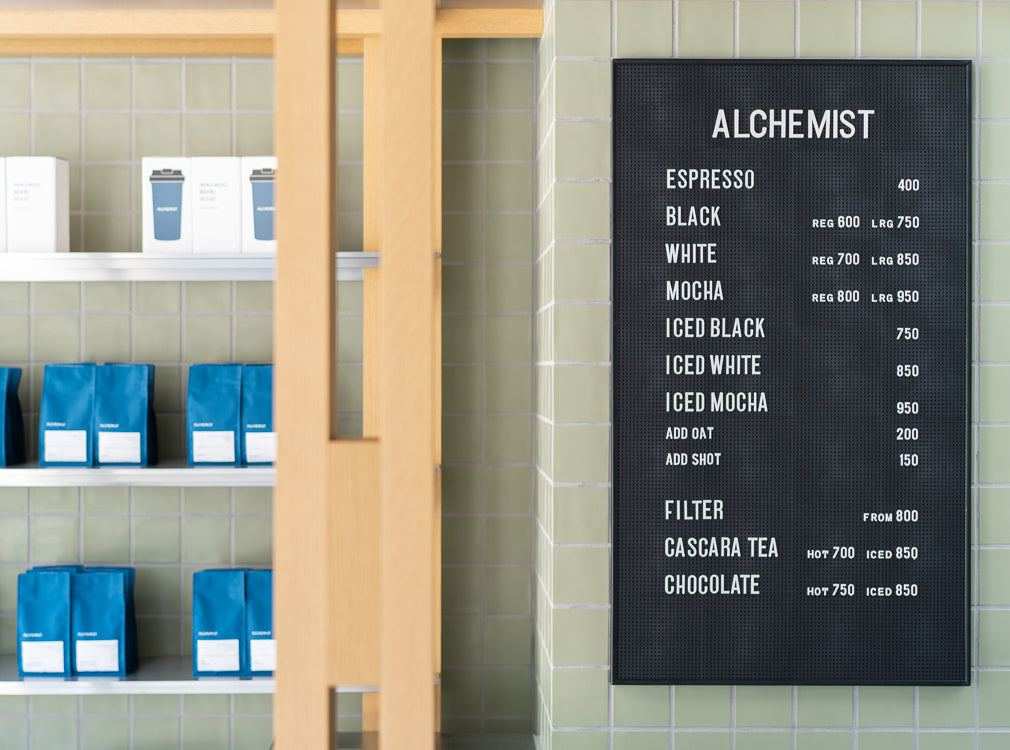 ALCHEMIST
ESPRESSO 400
BLACK REG 600 LRG 750
WHITE REG 700 LRG 850
MOCHA REG 800 LRG 950
ICED BLACK 750
ICED WHITE 850
ICED MOCHA 950
ADD OAT 200
ADD SHOT 150
FILTER FROM 800
CASCARA TEA HOT 700 ICED 850
CHOCOLATE HOT 750 ICED 850
ALCHEMIST
ALCHEMIST
ALCHEMIST
ALCHEMIST
ALCHEMIST
ALCHEMIST
ALCHEMIST